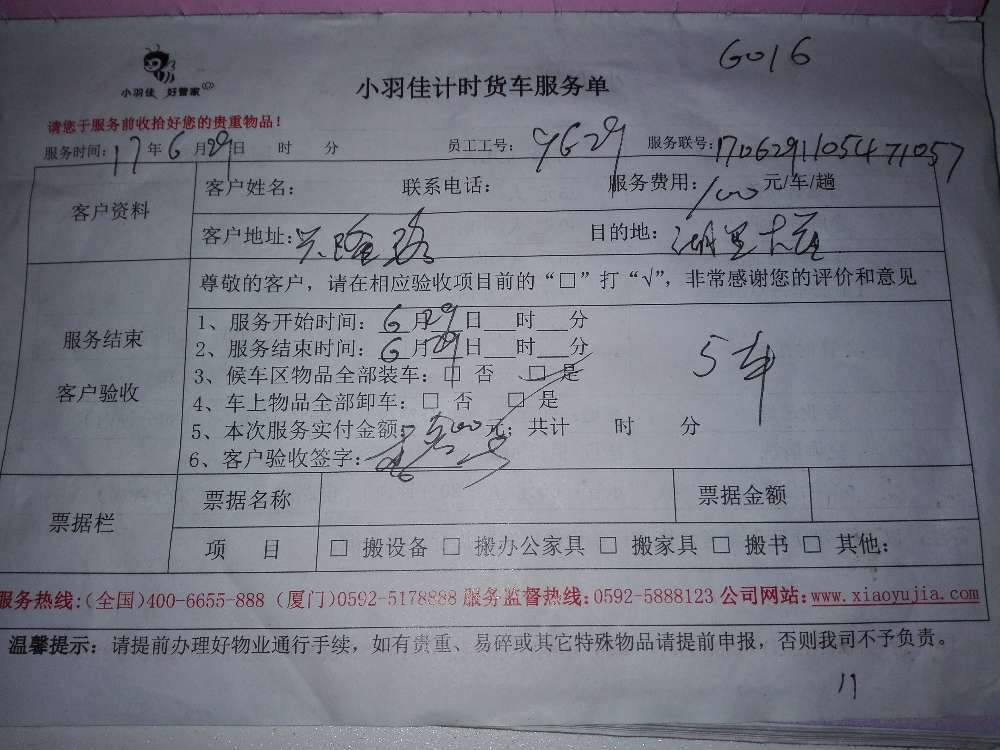 G016
小羽佳 好管家
小羽佳计时货车服务单
请您于服务前收拾好您的贵重物品！
服务时间：17年6月29日 时 分 员工工号：9629 服务联号：170629110547 1057
客户资料
客户姓名： 联系电话： 服务费用：100元/车/趟
客户地址：兴隆路 目的地：湖里大道
尊敬的客户，请在相应验收项目前的“□”打“√”，非常感谢您的评价和意见
服务结束
客户验收
1、服务开始时间：6月29日___时___分
2、服务结束时间：6月29日___时___分
3、候车区物品全部装车：□ 否 □ 是
4、车上物品全部卸车：□ 否 □ 是
5、本次服务实付金额：500元；共计 时 分
6、客户验收签字：
5车
票据栏
票据名称 票据金额
项 目 □ 搬设备 □ 搬办公家具 □ 搬家具 □ 搬书 □ 其他：
服务热线：(全国)400-6655-888 (厦门)0592-5178888 服务监督热线：0592-5888123 公司网站：www.xiaoyujia.com
温馨提示：请提前办理好物业通行手续，如有贵重、易碎或其它特殊物品请提前申报，否则我司不予负责。
11